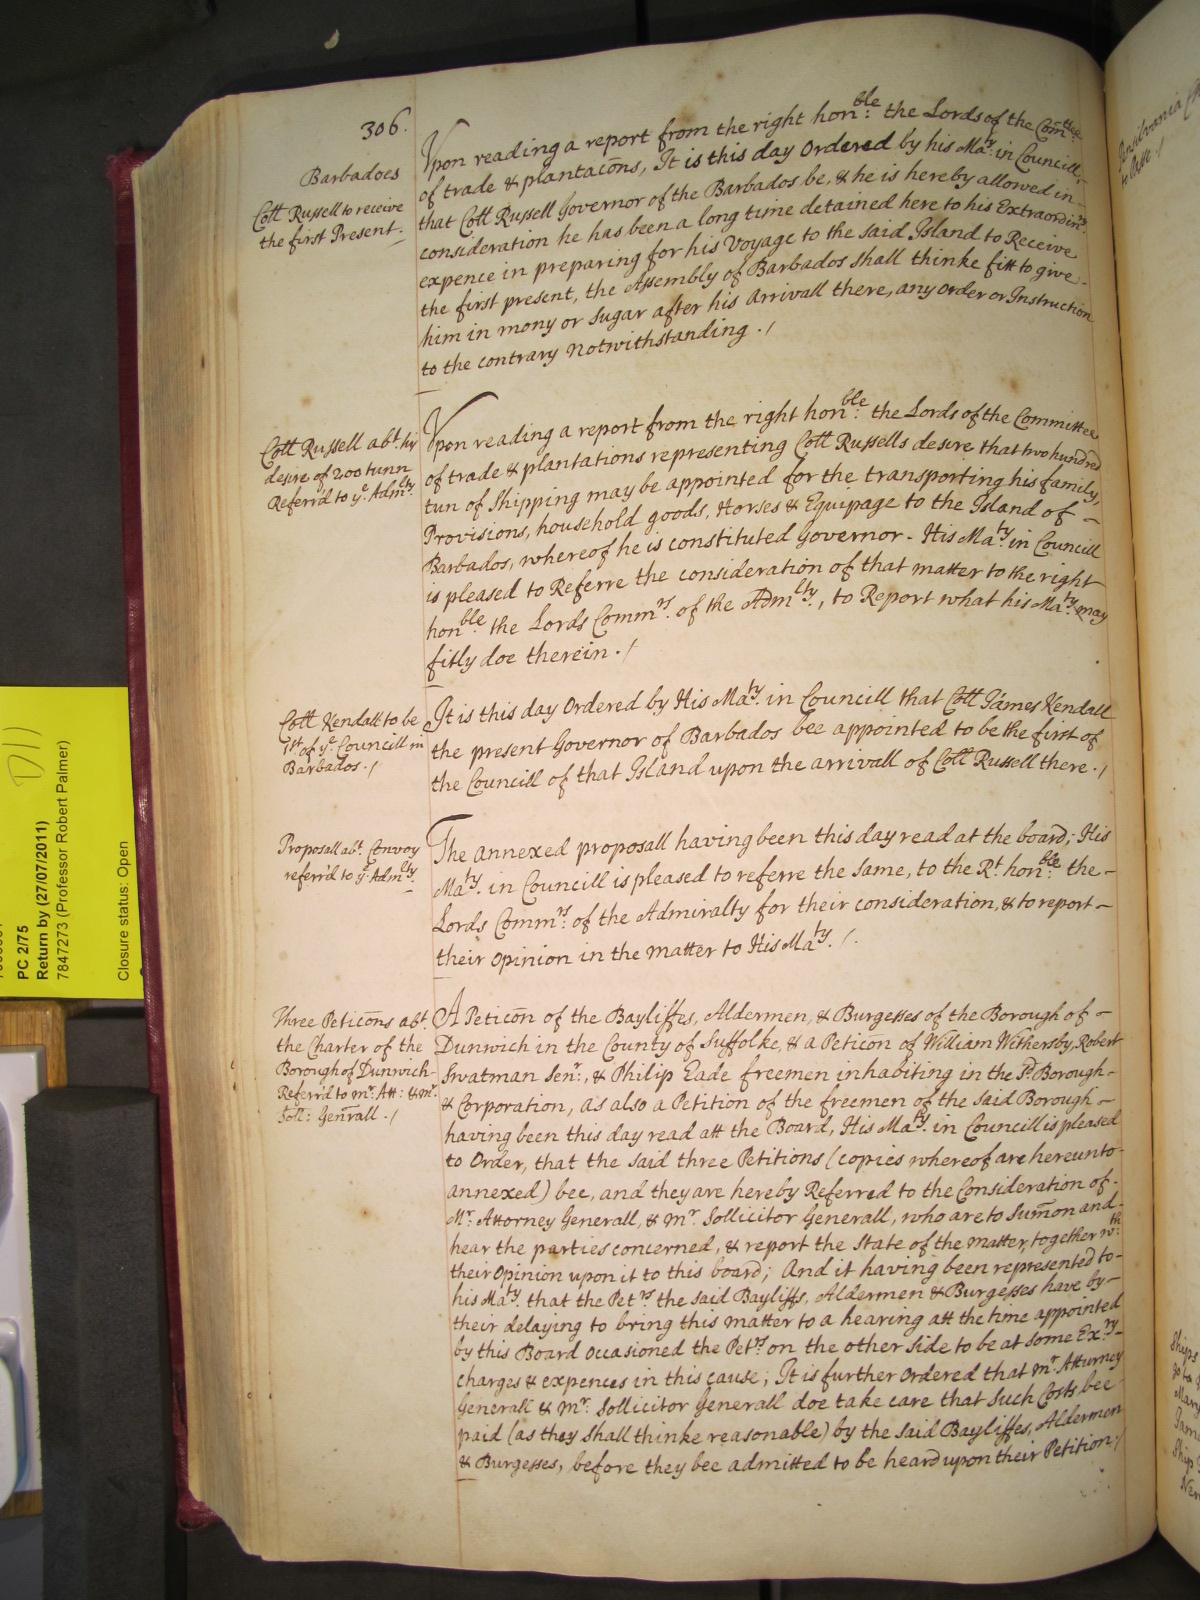 306.
Barbadoes
Coll Russell to receive
the first Present.
Vpon reading a report from the right hon:ble the Lords of the Com̄ttee
of trade & plantacōns, It is this day Ordered by his Ma:ty in Councill,
that Coll Russell Governor of the Barbados be, & he is hereby allowed in-
consideration he has been a long time detained here to his Extraordin:ry
expence in preparing for his Voyage to the said Island to Receive
the first present, the Assembly of Barbados shall thinke fitt to give-
him in mony or sugar after his Arrivall there, any Order or Instruction
to the contrary Notwithstanding ./
Coll Russell abt his
desire of 200 tunn
Referr'd to ye Adm:lty.
Vpon reading a report from the right hon:ble the Lords of the Committee
of trade & plantations representing Coll Russells desire that two hundred
tun of Shipping may be appointed for the transporting his family,
Provisions, household goods, Horses & Equipage to the Island of -
Barbados, whereof he is constituted Governor - His Ma:ty in Councill
is pleased to Referre the consideration of that matter to the right
hon:ble the Lords Comm:rs of the Adm:lty, to Report what his Ma:ty may
fitly doe therein ./
Coll Kendall to be
1st of ye Councill in
Barbados ./
It is this day Ordered by His Ma:ty in Councill that Coll James Kendall
the present Governor of Barbados bee appointed to be the first of
the Councill of that Island upon the arrivall of Coll Russell there ./
Proposall abt Convoy
referr'd to ye Adm:lty.
The annexed proposall having been this day read at the board; His
Ma:ty in Councill is pleased to referre the same, to the Rt hon:ble the -
Lords Comm:rs of the Admiralty for their consideration, & to report -
their Opinion in the matter to His Ma:ty ./.
Three Peticōns abt
the Charter of the
Borough of Dunwich
Referr'd to mr Att: & mr
Soll: Genr̄all ./
A Peticōn of the Bayliffes, Aldermen, & Burgesses of the Borough of -
Dunwich in the County of Suffolke, & a Peticon of William Withersby, Robert
Swatman Senr:, & Philip Eade freemen inhabiting in the sd Borough -
& Corporation, as also a Petition of the freemen of the said Borough -
having been this day read att the Board, His Ma:ty in Councill is pleased
to Order, that the said three Petitions (copies whereof are hereunto
annexed) bee, and they are hereby Referred to the Consideration of -
Mr: Attorney Generall, & mr Sollicitor Generall, who are to Sum̄on and -
hear the parties concerned, & report the State of the matter, together wth:
their Opinion upon it to this board; And it having been represented to -
his Ma:ty that the Pet:rs the said Bayliffs, Aldermen & Burgesses have by -
their delaying to bring this matter to a hearing att the time appointed
by this Board occasioned the Pet:rs on the other side to be at some Ex:ry -
charges & expences in this cause; It is further Ordered that mr Atturney
Generall & mr: Sollicitor Generall doe take care that such Costs bee
paid (as they shall thinke reasonable) by the said Bayliffes, Aldermen
& Burgesses, before they bee admitted to be heard upon their Petition ./
PC 2/75
Return by (27/07/2011)
7847273 (Professor Robert Palmer)
Closure status: Open
D11
Pensilvania
Ships
go to
Mary
Ship